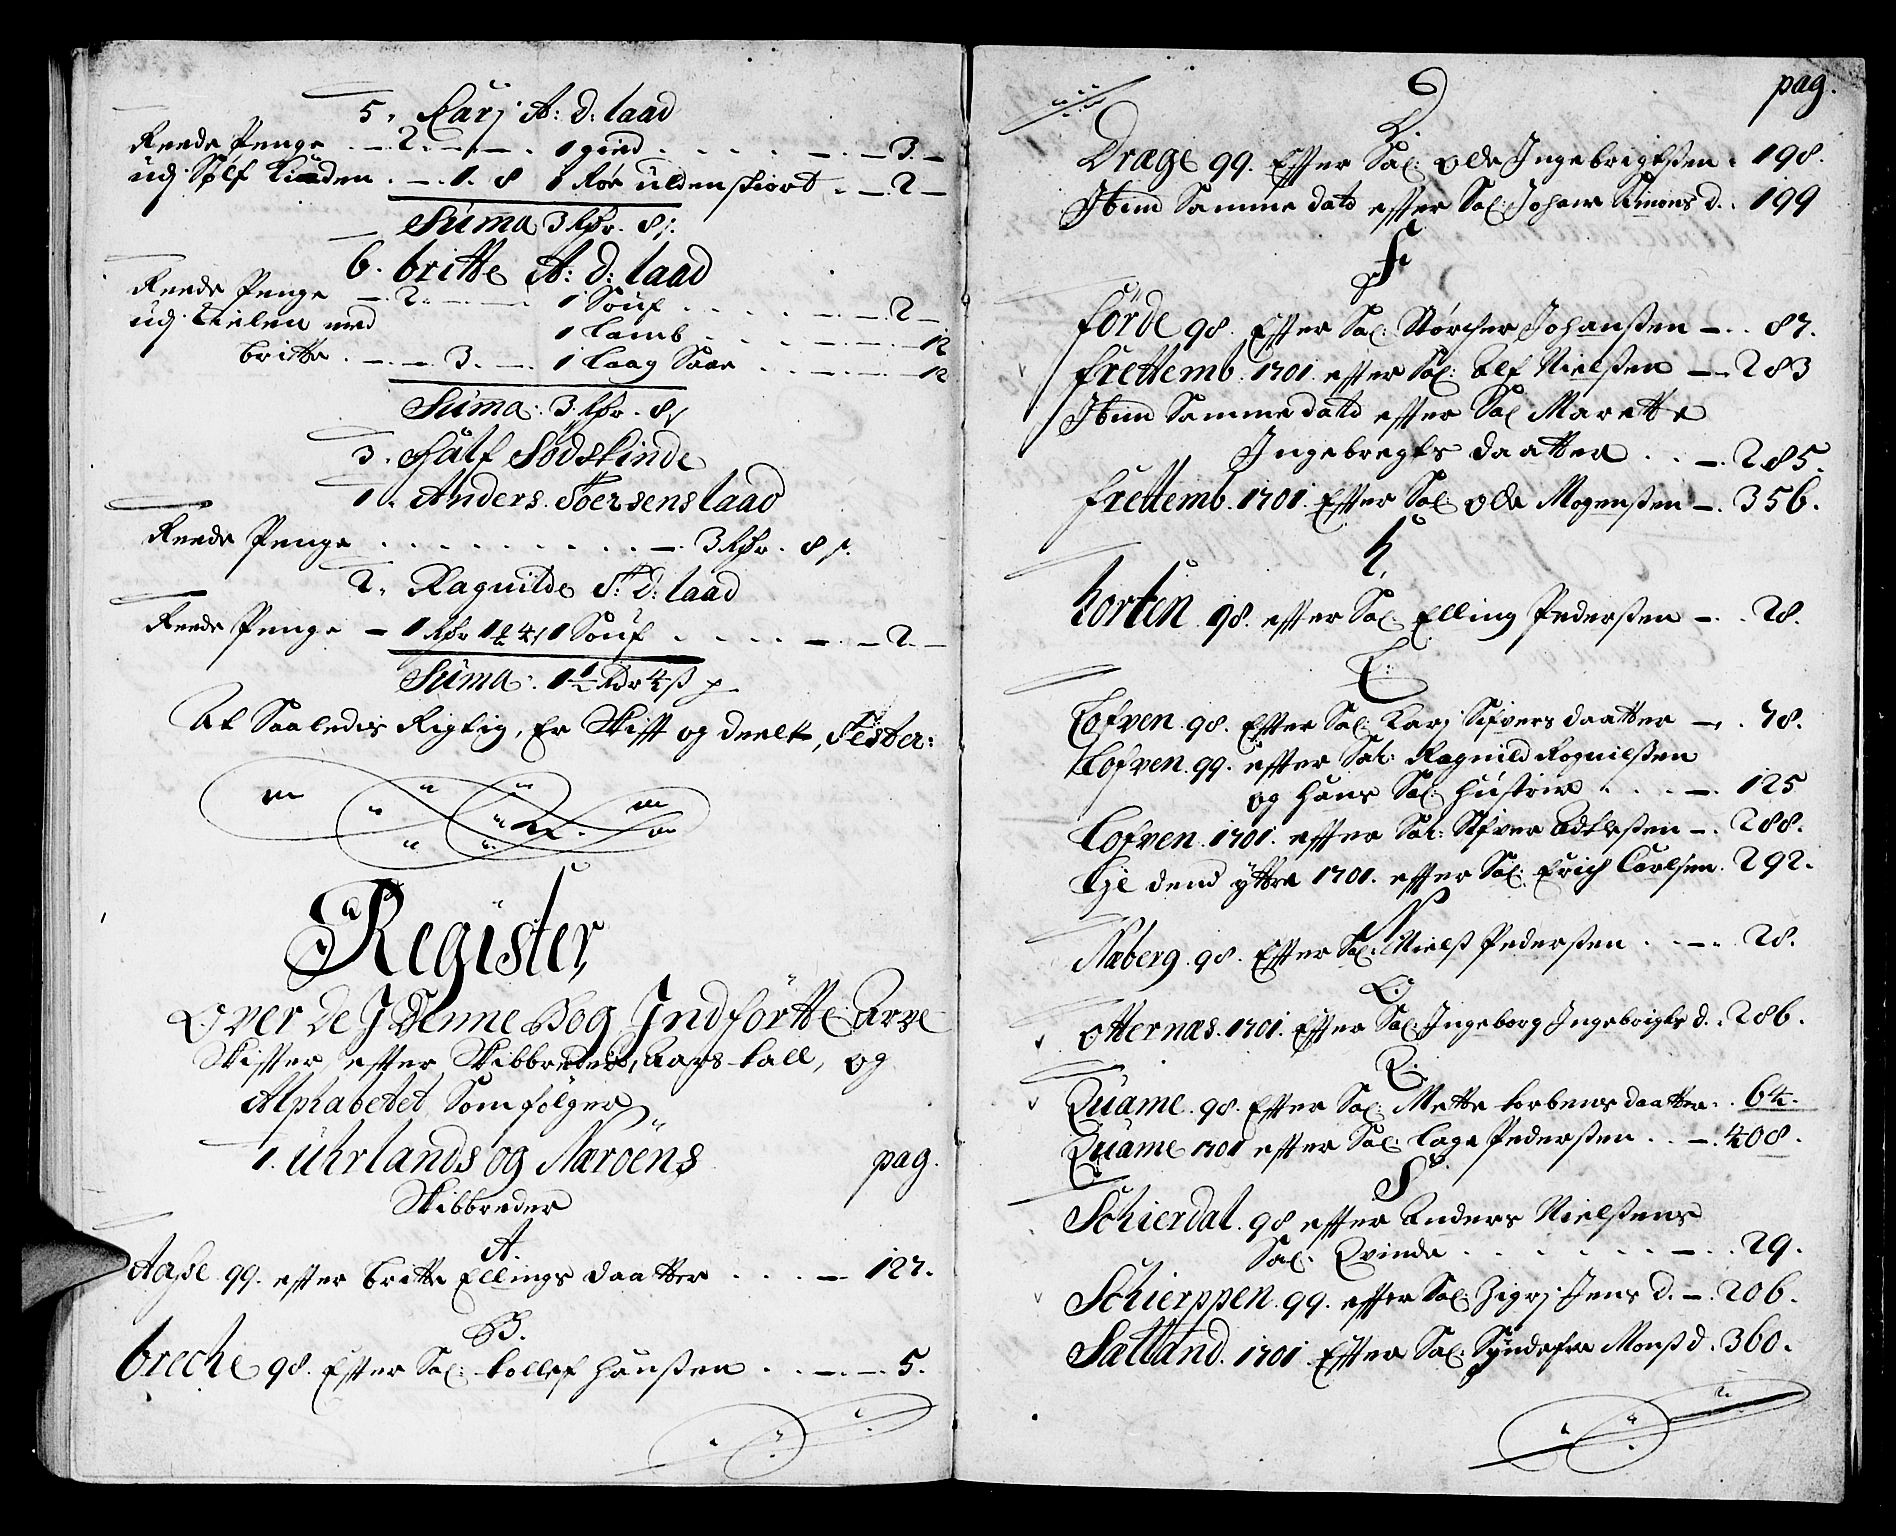 5. Karj A: D: laad
Reede Penge . - 2. - . - . 1 gied . . . . . - . - 3. -
udj Sølf Kanden . - . 1. 8 1 Rør ulden skiort . - 2 -
Suma 3 Rdr. 8 s:
6. britte A: D: laad
Reede Penge - . 2. - . - . 1 Souf . . . . - . - 2 -
udj Kielen med 1 Lamb . . . - . - . 12
britte . - . - . 3. - . 1 laag Saae . . - . - . 12
Suma: 3 Rdr. 8 s
3. Half Sødskinde
1. Anders Sioersens laad
Reede Penge . . . . . . . . . - . 3 Rdr. 8 s.
2. Ragnilde S: D: laad
Reede Penge - 1 Rdr 1 ½ 4 s 1 Souf . . . . - . - 2. -
Suma: 1 ½ Rdr 4 ß
At Saaledis Rigtig, Er Skift og deelt, Tester:
Register,
Over de J Denne Bog Jndførtte Arve
Skifter, efter Skibbreder, Aars-tall, og
Alphabetet Som følger
1. Uhrlands og Nærøens pag.
Skibbreder
A.
Aaße 99. efter britte Ellings daatter . . . - 127.
B.
breche 98. Efter Sal: tollef Hansßen . . - . - . 5.
pag.
D.
Drægé 99. Efter Sal: Ole Ingebrigtsßen . 198.
Ibim Samme dato efter Sal: Johane Simons d. . 199
F
förde 98. Efter Sal: Størcher Johanßen - . . 87.
frettemb. 1701. efter Sal: Elf Nielsßen - . 283
Ibim Samme dato efter Sal Marette
Ingebregts daatter . . - . 285.
frettemb. 1701. Efter Sal Ole Mogensßen - . 356.
h.
horten 98. efter Sal. Elling Pedersßen - . . 28.
L:
Lofven 98. Efter Sal: Karj Sifvers daatter - . . 78.
Lofven 99. efter Sal: Ragnild Rognilsßen
og hans Sal: hustrue . . . - . 125
Lofven. 1701. efter Sal: Sifver Adtlesßen - . 288.
Lje dend yttre 1701. efter Sal: Erich Carlsen. 292.
N
Næberg 98. Efter Sal: Nielß Pedersßen . . - . . 28.
O
Otternæs. 1701. Efter Sal Ingeborg Ingebrigts d. . 286.
Q.
Quame. 98. Efter Sal: Mette torbens daatter. . 64.
Quame 1701 efter Sal: Lage Pedersßen . . - . 408.
S.
Schierdal. 98 efter Anders Nielsßens
Sal: Qvinde . . . . . . . - . . 29.
Schierppen. 99. efter Sal: Zigrj Jens d. - . 206.
Sætland. 1701. Efter Sal: Syndefre Monß d. 360.